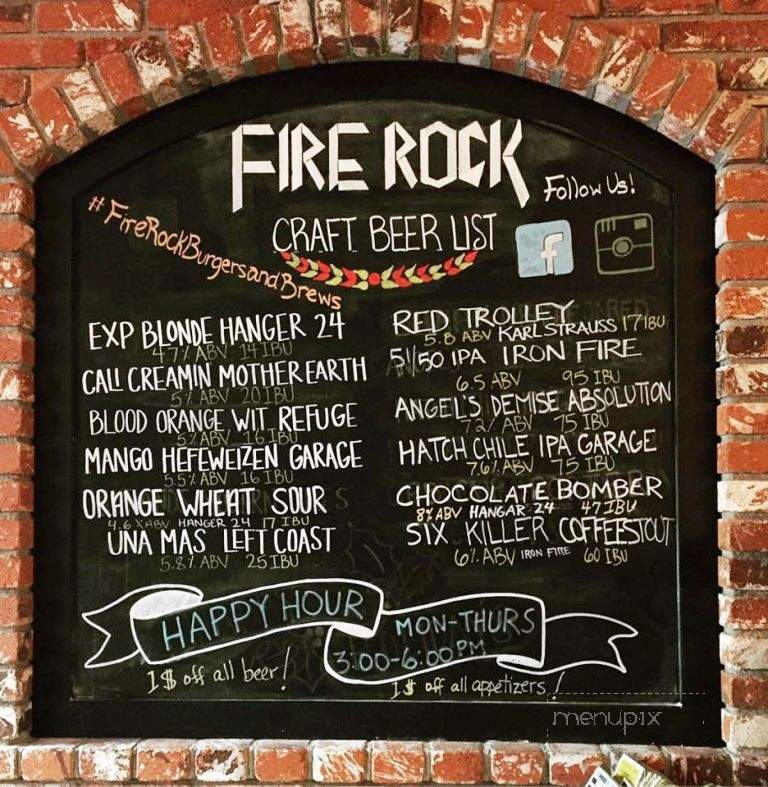 FIRE ROCK
Follow Us!
CRAFT BEER LIST
f
#FireRockBurgersandBrews
EXP BLONDE HANGER 24
4.7% ABV 14 IBU
CALI CREAMIN MOTHER EARTH
5% ABV 20 IBU
BLOOD ORANGE WIT REFUGE
5% ABV 16 IBU
MANGO HEFEWEIZEN GARAGE
5.5% ABV 16 IBU
ORANGE WHEAT SOUR
4.6% ABV HANGER 24 17 IBU
UNA MAS LEFT COAST
5.8% ABV 25 IBU
RED TROLLEY
5.8 ABV KARL STRAUSS 17 IBU
51/50 IPA IRON FIRE
6.5 ABV 95 IBU
ANGEL'S DEMISE ABSOLUTION
7.2% ABV 75 IBU
HATCH CHILE IPA GARAGE
7.6% ABV 75 IBU
CHOCOLATE BOMBER
8% ABV HANGAR 24 47 IBU
SIX KILLER COFFEESTOUT
6% ABV IRON FIRE 60 IBU
HAPPY HOUR
MON-THURS
3:00-6:00 PM
1$ off all beer!
1$ off all appetizers!
menupix